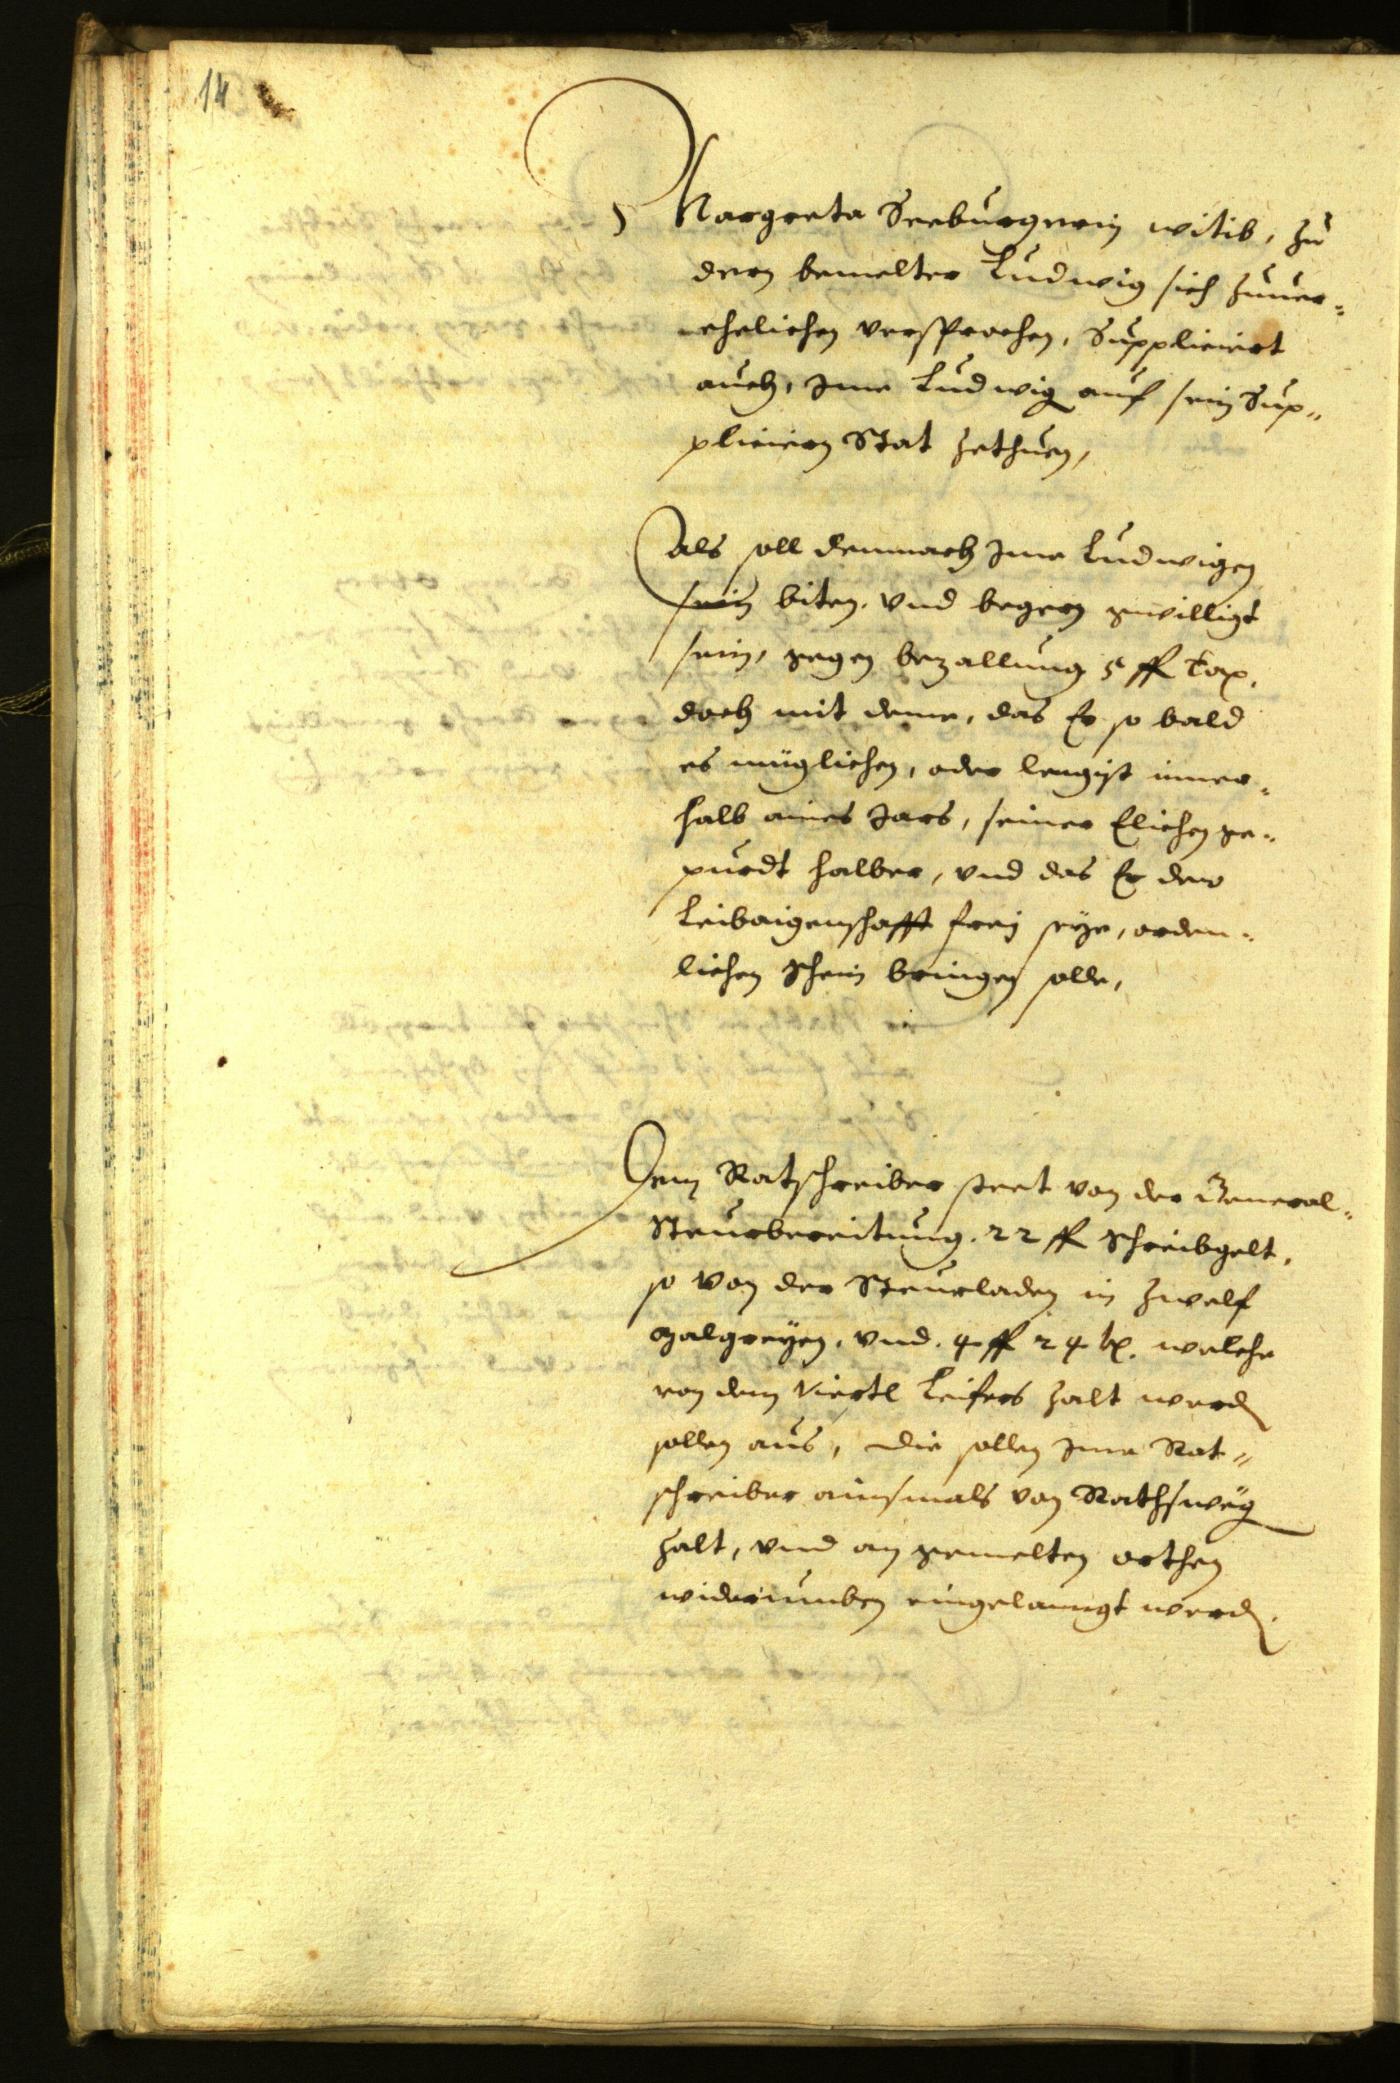 14
Margreta Seeburgerin witib, zu
dern bemelter Ludwig sich zuuer=
ehelichen versprochen, Suppliciert
auch, Jme Ludwig auf sein Sup=
pliciern Stat zethuen,
Als soll demnach Jme Ludwigen
sein biten, vnd begern gwilligt
sein, gegen bezallung 5 ff Tax,
doch mit deme, das Er so bald
es müglichen, oder lengist inner=
halb aines Jars, seiner Elichen ge=
purdt halber, vnd das Er der
Leibaigenschafft frej seye, orden=
lichen schein bringen solle,
Dem Ratschreiber steet von der General=
Steurbereitung. 22 ff Schreibgelt,
so von der Steurladen in zwelf
Malgreyen, vnd. 4 ff 24 kr. welche
von dem Viertl Leifers zalt werden
sollen aus, die sollen Jme Rat=
schreiber ainsmals von Rathsweg
zalt, vnd an gemelten orthen
widerumben eingelanngt werden.